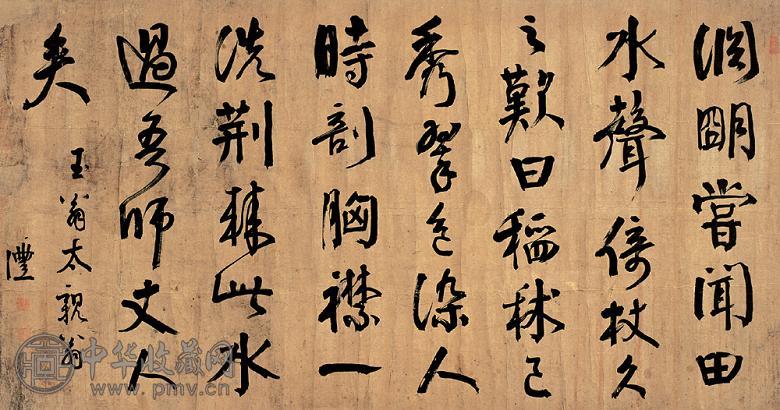 淵明嘗聞田
水聲倚杖久
之歎曰稻秫已
秀翠色染人
時剖胸襟一
洗荊棘此水
過吾師丈人
矣
玉翁太親翁
灃
中华收藏网
www.pmv.cn